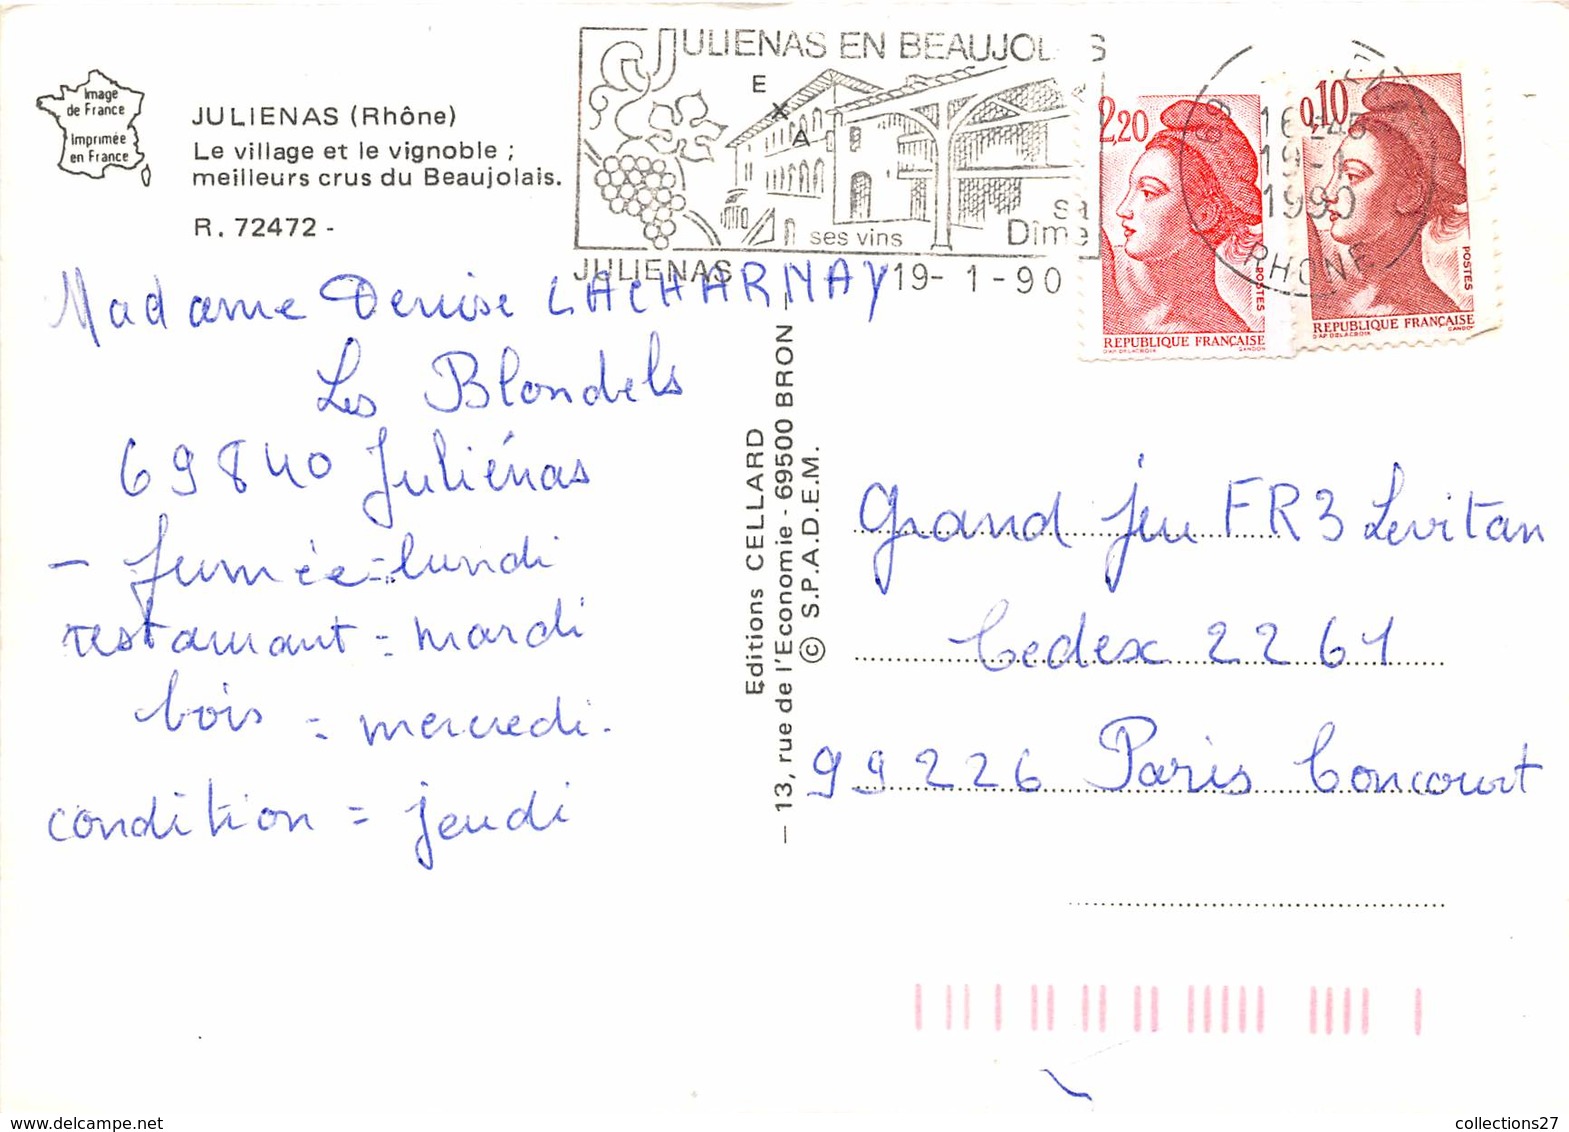 Image
de France
Imprimée
en France
JULIENAS (Rhône)
Le village et le vignoble ;
meilleurs crus du Beaujolais.
R. 72472 -
JULIENAS EN BEAUJOLAIS
E
X
A
ses vins
sa
Dîme
JULIENAS
19- 1 -90
2,20
POSTES
REPUBLIQUE FRANÇAISE
D'AP. DELACROIX GANDON
16 -45
19-1
1990
RHONE
0,10
POSTES
REPUBLIQUE FRANÇAISE
D'AP. DELACROIX GANDON
Madame Denise LACHARNAY
Les Blondels
69840 Juliénas
- fumée = lundi
restaurant = mardi
bois = mercredi.
condition = jeudi
Editions CELLARD
— 13, rue de l'Economie - 69500 BRON —
© S.P.A.D.E.M.
Grand jeu FR3 Levitan
Cedex 2261
99226 Paris Concourt
collections27